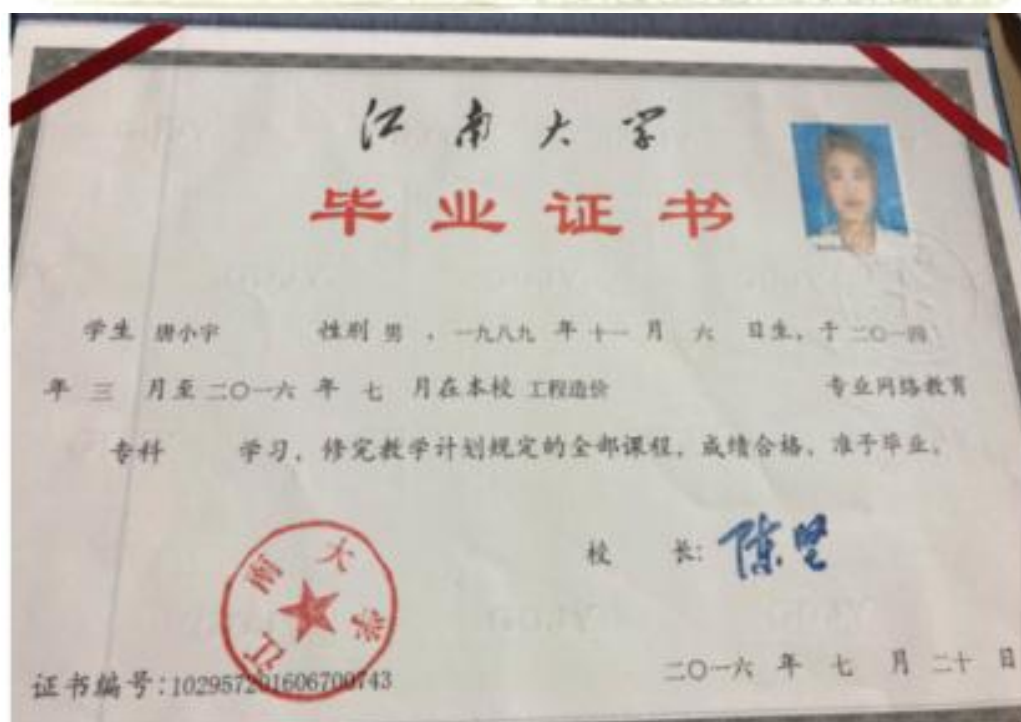 江南大学
毕业证书
学生 唐小宇 性别 男 ，一九八九 年 十一 月 六 日生，于 二〇一四
年 三 月至 二〇一六 年 七 月在本校 工程造价 专业网络教育
专科 学习，修完教学计划规定的全部课程，成绩合格，准予毕业。
校 长: 陈坚
江南大学
二〇一六 年 七 月 二十 日
证书编号:102957201606700743